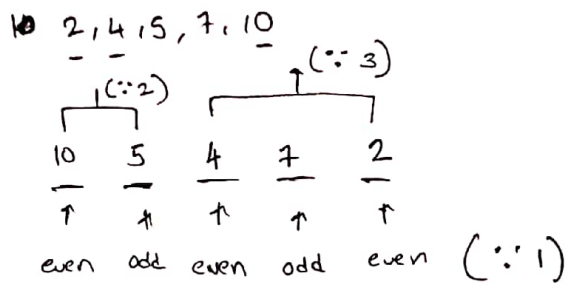 2, 4, 5, 7, 10
(∵ 2) (∵ 3)
10 5 4 7 2
even odd even odd even (∵ 1)